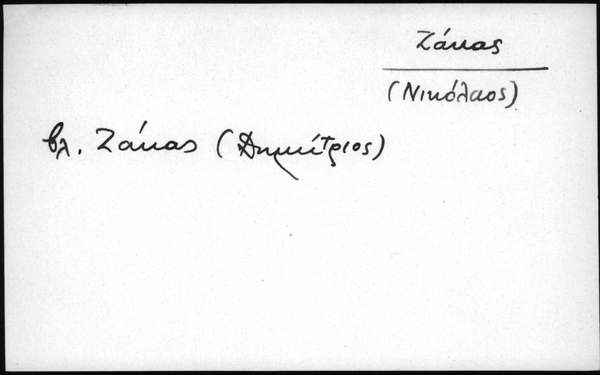 Ζάκας
(Νικόλαος)
βλ. Ζάκας (Δημήτριος)